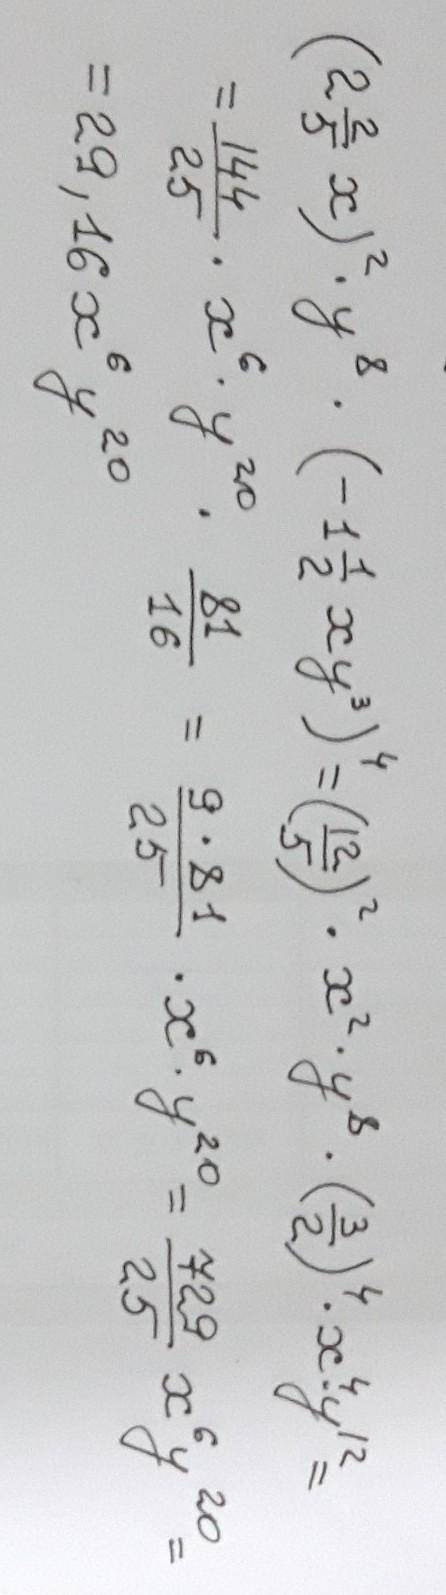 (2 2/5 x)² · y⁸ · (-1 1/2 xy³)⁴ = (12/5)² · x² · y⁸ · (3/2)⁴ · x⁴ · y¹² =
= 144/25 · x⁶ · y²⁰ · 81/16 = 9·81/25 · x⁶ · y²⁰ = 729/25 x⁶y²⁰ =
= 29,16x⁶y²⁰